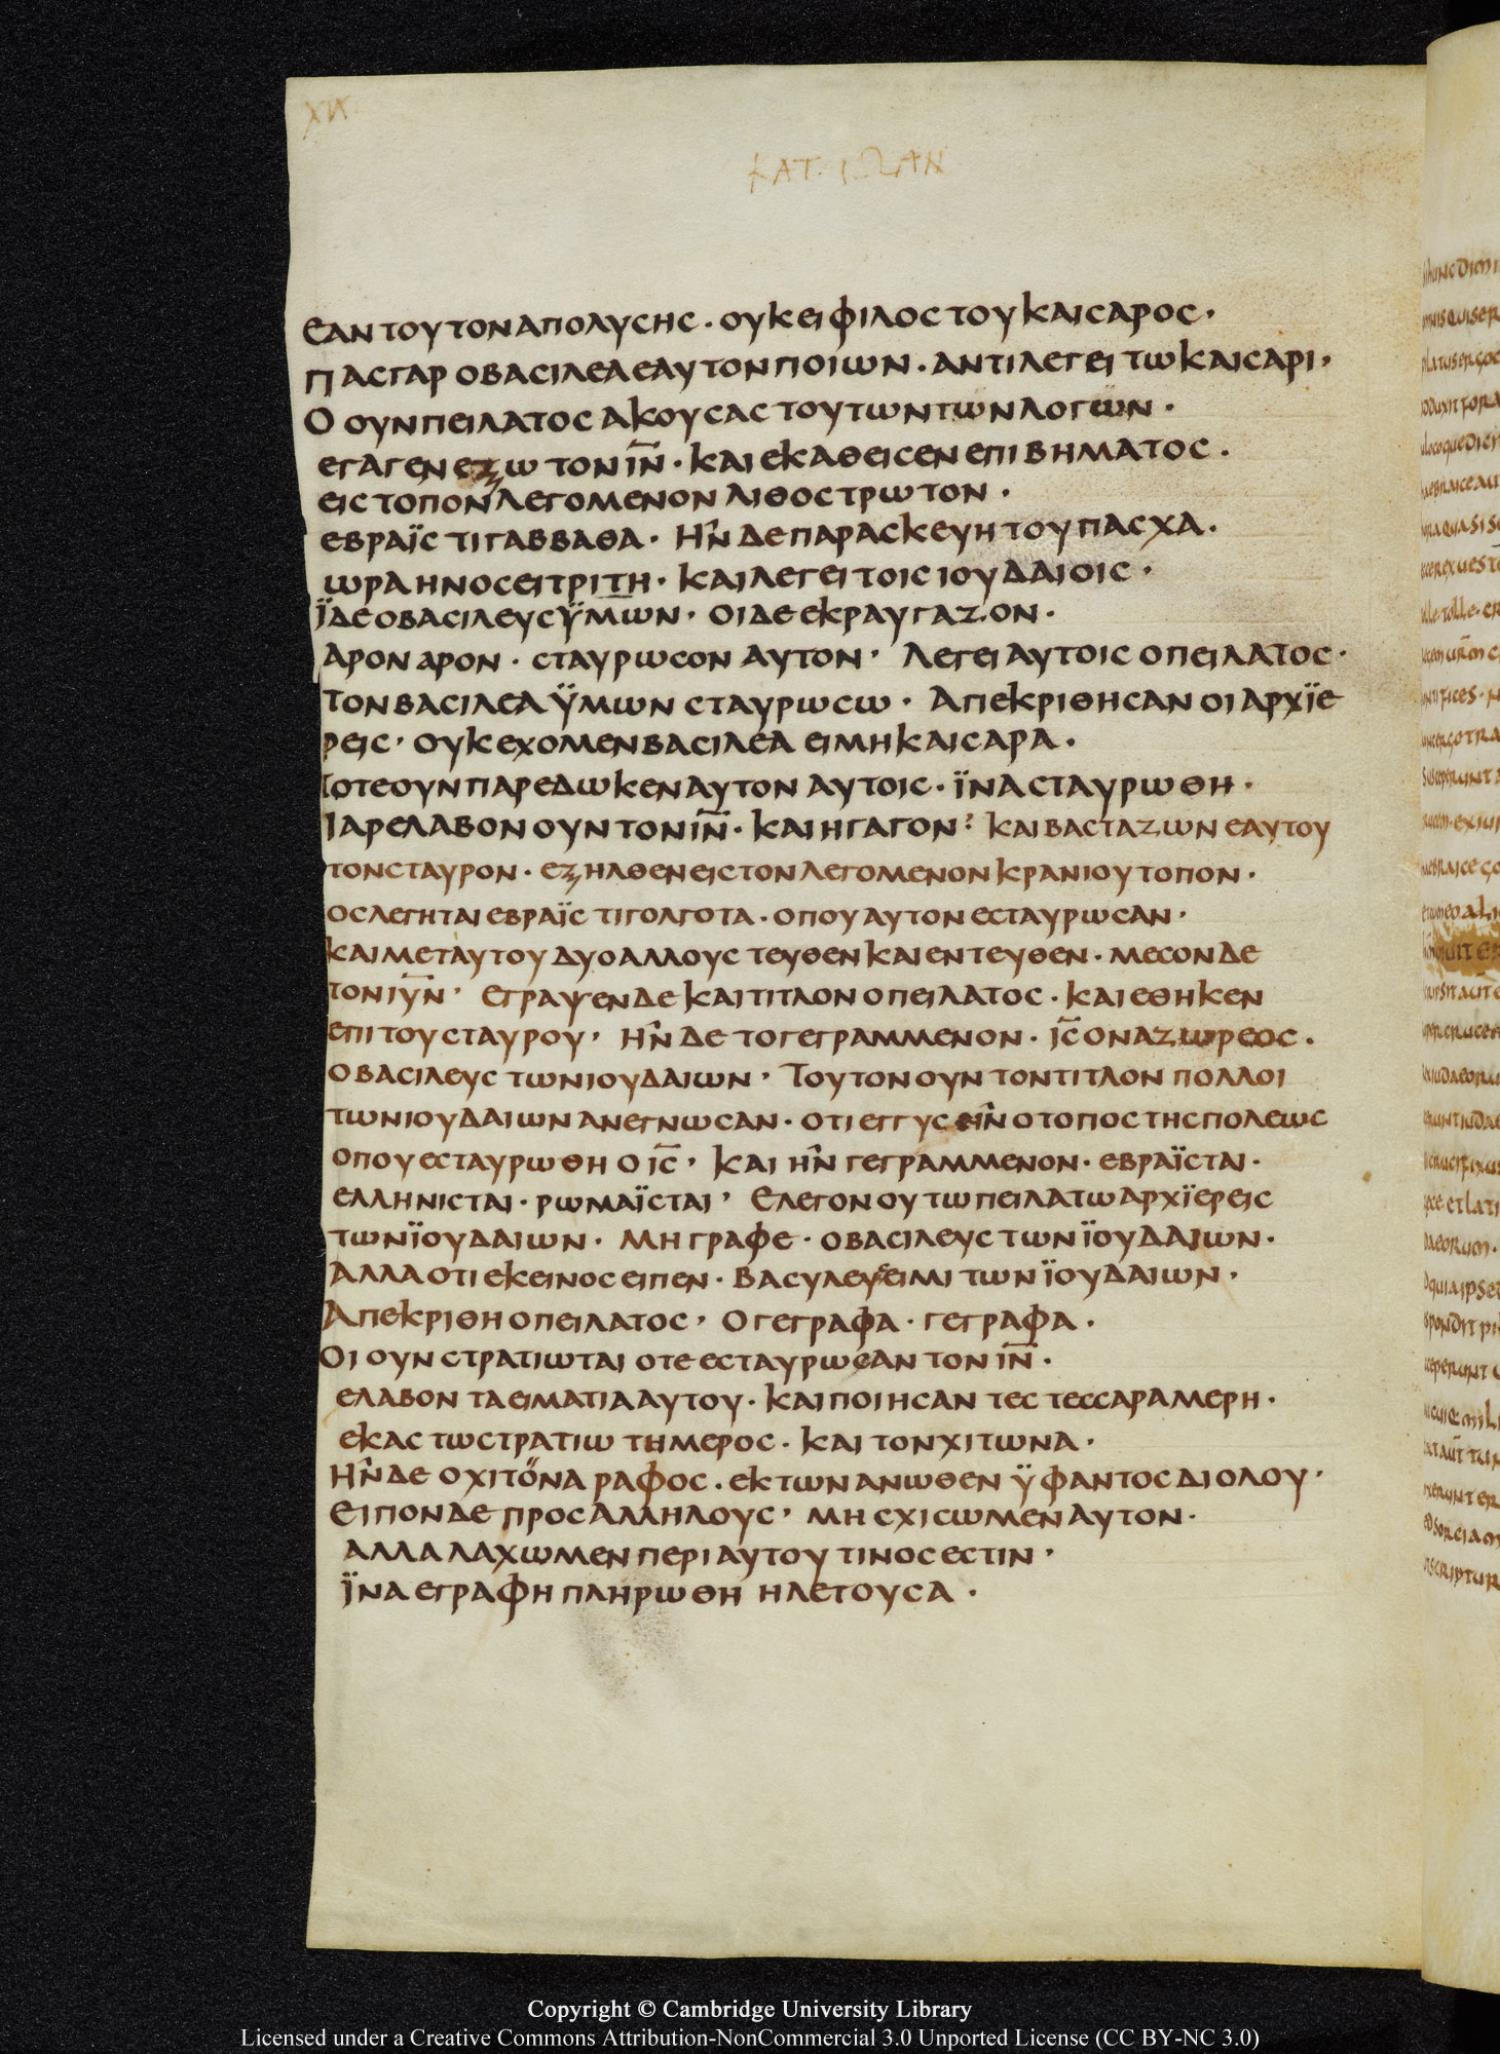 ΚΑΤ· ΙΩΑΝ
ΕΑΝ ΤΟΥΤΟΝ ΑΠΟΛΥΣΗΣ · ΟΥΚ ΕΙ ΦΙΛΟΣ ΤΟΥ ΚΑΙΣΑΡΟΣ ·
ΠΑΣ ΓΑΡ Ο ΒΑΣΙΛΕΑ ΕΑΥΤΟΝ ΠΟΙΩΝ · ΑΝΤΙΛΕΓΕΙ ΤΩ ΚΑΙΣΑΡΙ ·
Ο ΟΥΝ ΠΕΙΛΑΤΟΣ ΑΚΟΥΣΑΣ ΤΟΥΤΩΝ ΤΩΝ ΛΟΓΩΝ ·
ΕΓΑΓΕΝ ΕΞΩ ΤΟΝ ΙΝ̅ · ΚΑΙ ΕΚΑΘΕΙΣΕΝ ΕΠΙ ΒΗΜΑΤΟΣ ·
ΕΙΣ ΤΟΠΟΝ ΛΕΓΟΜΕΝΟΝ ΛΙΘΟΣΤΡΩΤΟΝ ·
ΕΒΡΑΪΣΤΙ ΓΑΒΒΑΘΑ · ΗΝ ΔΕ ΠΑΡΑΣΚΕΥΗ ΤΟΥ ΠΑΣΧΑ ·
ΩΡΑ ΗΝ ΟΣΕΙ ΤΡΙΤΗ · ΚΑΙ ΛΕΓΕΙ ΤΟΙΣ ΙΟΥΔΑΙΟΙΣ ·
ΪΔΕ Ο ΒΑΣΙΛΕΥΣ ΫΜΩΝ · ΟΙ ΔΕ ΕΚΡΑΥΓΑΖΟΝ ·
ΑΡΟΝ ΑΡΟΝ · ΣΤΑΥΡΩΣΟΝ ΑΥΤΟΝ · ΛΕΓΕΙ ΑΥΤΟΙΣ Ο ΠΕΙΛΑΤΟΣ ·
ΤΟΝ ΒΑΣΙΛΕΑ ΫΜΩΝ ΣΤΑΥΡΩΣΩ · ΑΠΕΚΡΙΘΗΣΑΝ ΟΙ ΑΡΧΪΕ
ΡΕΙΣ · ΟΥΚ ΕΧΟΜΕΝ ΒΑΣΙΛΕΑ ΕΙ ΜΗ ΚΑΙΣΑΡΑ ·
ΤΟΤΕ ΟΥΝ ΠΑΡΕΔΩΚΕΝ ΑΥΤΟΝ ΑΥΤΟΙΣ · ΪΝΑ ΣΤΑΥΡΩΘΗ ·
ΠΑΡΕΛΑΒΟΝ ΟΥΝ ΤΟΝ ΙΝ̅ · ΚΑΙ ΗΓΑΓΟΝ : ΚΑΙ ΒΑΣΤΑΖΩΝ ΕΑΥΤΟΥ
ΤΟΝ ΣΤΑΥΡΟΝ · ΕΞΗΛΘΕΝ ΕΙΣ ΤΟΝ ΛΕΓΟΜΕΝΟΝ ΚΡΑΝΙΟΥ ΤΟΠΟΝ ·
ΟΣ ΛΕΓΗΤΑΙ ΕΒΡΑΪΣΤΙ ΓΟΛΓΟΤΑ · ΟΠΟΥ ΑΥΤΟΝ ΕΣΤΑΥΡΩΣΑΝ ·
ΚΑΙ ΜΕΤ ΑΥΤΟΥ ΔΥΟ ΑΛΛΟΥΣ ΤΕΥΘΕΝ ΚΑΙ ΕΝΤΕΥΘΕΝ · ΜΕΣΟΝ ΔΕ
ΤΟΝ ΙΥΝ̅ · ΕΓΡΑΨΕΝ ΔΕ ΚΑΙ ΤΙΤΛΟΝ Ο ΠΕΙΛΑΤΟΣ · ΚΑΙ ΕΘΗΚΕΝ
ΕΠΙ ΤΟΥ ΣΤΑΥΡΟΥ · ΗΝ ΔΕ ΤΟ ΓΕΓΡΑΜΜΕΝΟΝ · ΙΣ̅ Ο ΝΑΖΩΡΕΟΣ ·
Ο ΒΑΣΙΛΕΥΣ ΤΩΝ ΙΟΥΔΑΙΩΝ · ΤΟΥΤΟΝ ΟΥΝ ΤΟΝ ΤΙΤΛΟΝ ΠΟΛΛΟΙ
ΤΩΝ ΙΟΥΔΑΙΩΝ ΑΝΕΓΝΩΣΑΝ · ΟΤΙ ΕΓΓΥΣ ΗΝ Ο ΤΟΠΟΣ ΤΗΣ ΠΟΛΕΩΣ
ΟΠΟΥ ΕΣΤΑΥΡΩΘΗ Ο ΙΣ̅ · ΚΑΙ ΗΝ ΓΕΓΡΑΜΜΕΝΟΝ · ΕΒΡΑΪΣΤΑΙ ·
ΕΛΛΗΝΙΣΤΑΙ · ΡΩΜΑΪΣΤΑΙ · ΕΛΕΓΟΝ ΟΥ ΤΩ ΠΕΙΛΑΤΩ ΑΡΧΪΕΡΕΙΣ
ΤΩΝ ΪΟΥΔΑΙΩΝ · ΜΗ ΓΡΑΦΕ · Ο ΒΑΣΙΛΕΥΣ ΤΩΝ ΪΟΥΔΑΙΩΝ ·
ΑΛΛΑ ΟΤΙ ΕΚΕΙΝΟΣ ΕΙΠΕΝ · ΒΑΣΥΛΕΥΣ ΕΙΜΙ ΤΩΝ ΪΟΥΔΑΙΩΝ ·
ΑΠΕΚΡΙΘΗ Ο ΠΕΙΛΑΤΟΣ · Ο ΓΕΓΡΑΦΑ · ΓΕΓΡΑΦΑ ·
ΟΙ ΟΥΝ ΣΤΡΑΤΙΩΤΑΙ ΟΤΕ ΕΣΤΑΥΡΩΣΑΝ ΤΟΝ ΙΝ̅ ·
ΕΛΑΒΟΝ ΤΑ ΕΙΜΑΤΙΑ ΑΥΤΟΥ · ΚΑΙ ΠΟΙΗΣΑΝ ΤΕΣ ΤΕΣΣΑΡΑ ΜΕΡΗ ·
ΕΚΑΣΤΩ ΣΤΡΑΤΙΩΤΗ ΜΕΡΟΣ · ΚΑΙ ΤΟΝ ΧΙΤΩΝΑ ·
ΗΝ ΔΕ Ο ΧΙΤΟΝ ΑΡΑΦΟΣ · ΕΚ ΤΩΝ ΑΝΩΘΕΝ ΫΦΑΝΤΟΣ ΔΙ ΟΛΟΥ ·
ΕΙΠΟΝ ΔΕ ΠΡΟΣ ΑΛΛΗΛΟΥΣ · ΜΗ ΣΧΙΣΩΜΕΝ ΑΥΤΟΝ ·
ΑΛΛΑ ΛΑΧΩΜΕΝ ΠΕΡΙ ΑΥΤΟΥ ΤΙΝΟΣ ΕΣΤΙΝ ·
ΪΝΑ ΕΓΡΑΦΗ ΠΛΗΡΩΘΗ Η ΛΕΤΟΥΣΑ ·
Copyright © Cambridge University Library
Licensed under a Creative Commons Attribution-NonCommercial 3.0 Unported License (CC BY-NC 3.0)